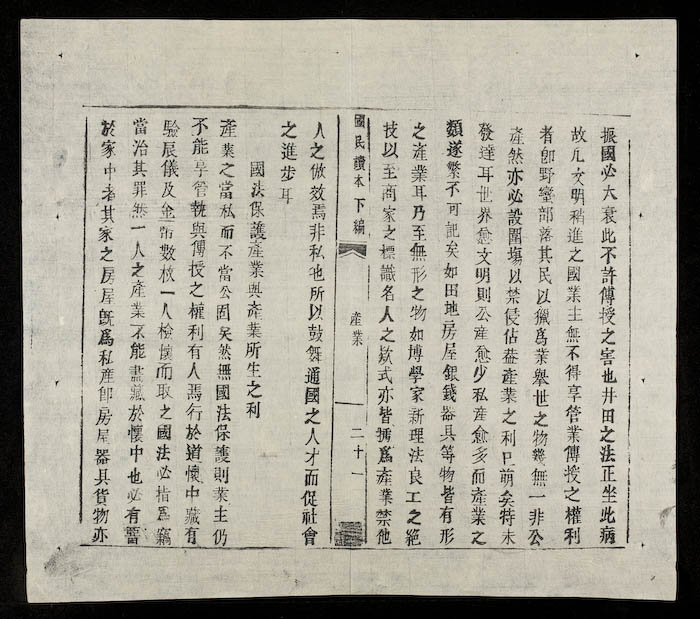 振國必大衰此不許傳授之害也井田之法正坐此病
故凡文明稍進之國業主無不得享管業傳授之權利
者卽野蠻部落其民以獵爲業舉世之物幾無一非公
產然亦必設圍塲以禁侵佔蓋產業之利已萌矣特未
發達耳世界愈文明則公產愈少私產愈多而產業之
類遂繁不可記矣如田地房屋銀錢器具等物皆有形
之產業耳乃至無形之物如博學家新理法良工之絕
技以至商家之標識名人之欵式亦皆據爲產業禁他
國民讀本 下編
產業
二十一
人之倣效焉非私也所以鼓舞通國之人才而促社會
之進步耳
國法保護產業與產業所生之利
產業之當私而不當公固矣然無國法保護則業主仍
不能享管執與傳授之權利有人焉行於道懷中藏有
驗辰儀及金幣數枚一人檢懷而取之國法必指爲竊
當治其罪然一人之產業不能盡藏於懷中也必有畱
於家中者其家之房屋旣爲私產卽房屋器具貨物亦